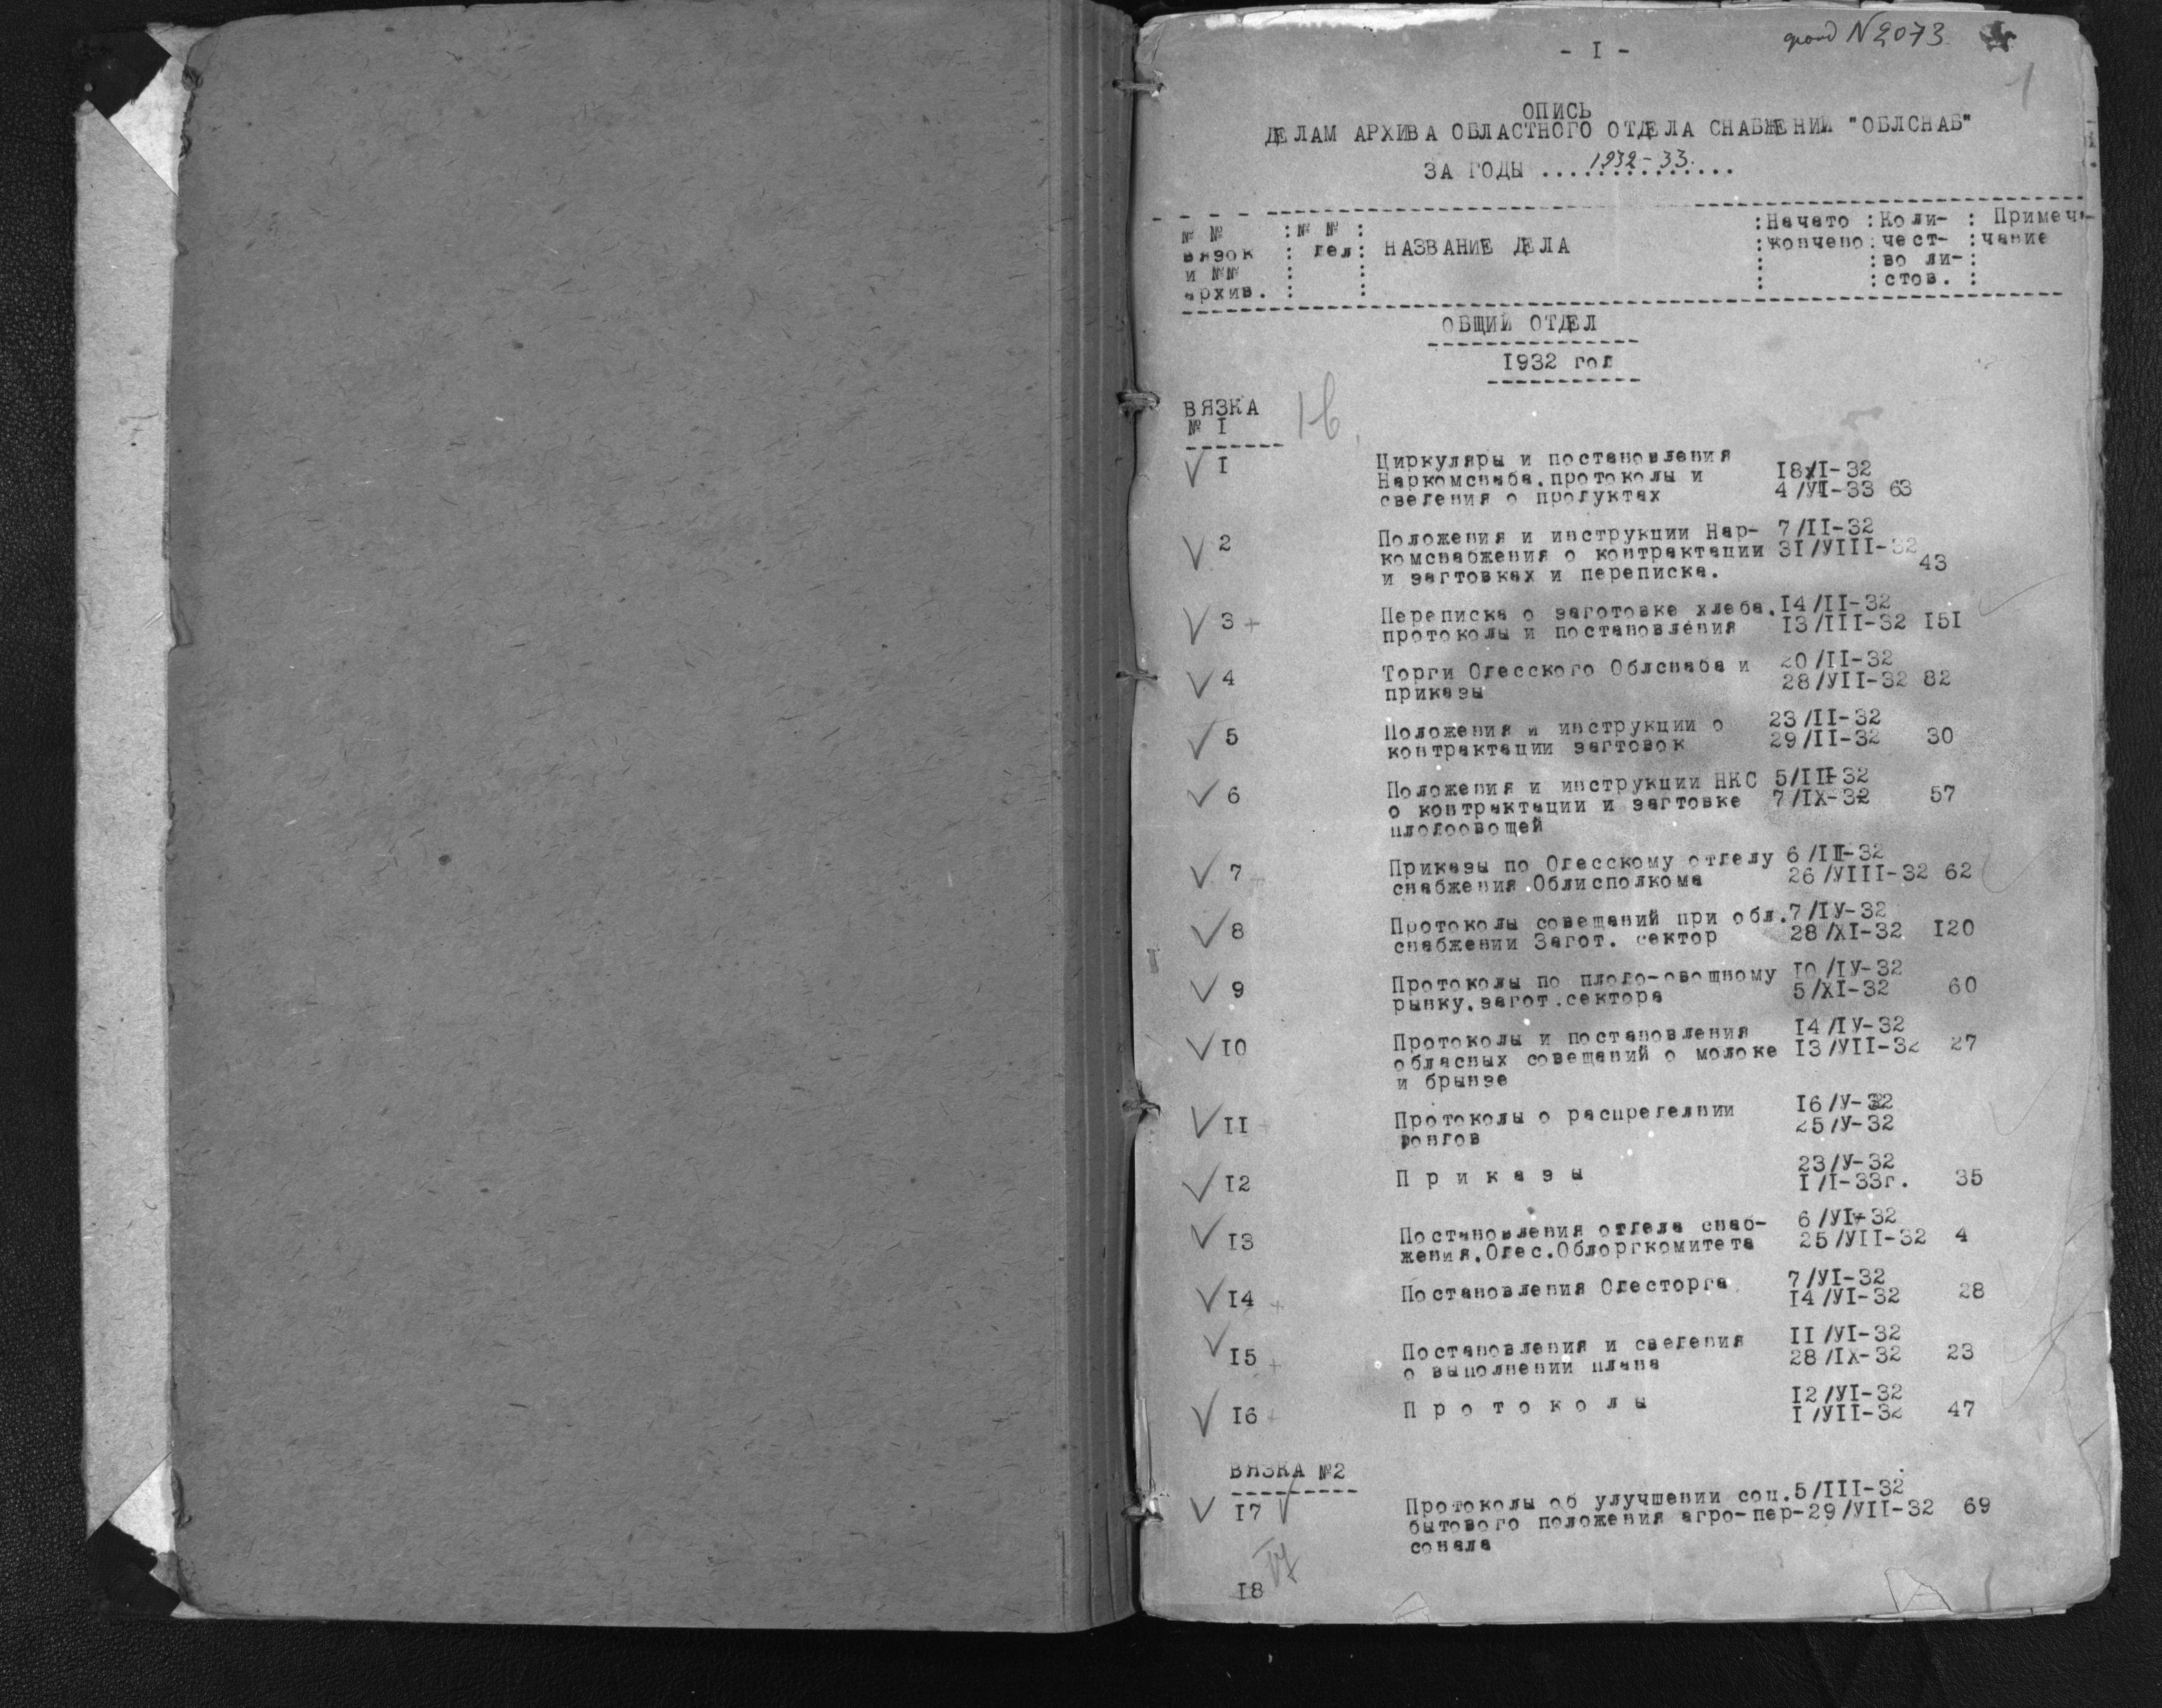 - I -
фонд N 2073
1
ОПИСЬ
ДЕЛАМ АРХИВА ОБЛАСТНОГО ОТДЕЛА СНАБЖЕНИИ "ОБЛСНАБ"
ЗА ГОДЫ ...1932-33....
№ № :№ № : :Начато :Коли- : Примеч-
вязок : дел: НАЗВАНИЕ ДЕЛА :кончено:чест- :чание
и №№ : : : :во ли-:
архив. : : : :стов. :
ОБЩИЙ ОТДЕЛ
1932 год
ВЯЗКА
№ I
16
I Циркуляры и постановления
Наркомснаба.протоколы и 18/I-32
сведения о продуктах 4/УI-33 63
2 Положения и инструкции Нар- 7/II-32
комснабжения о контрактации 3I/УIII-32
и загтовках и переписка. 43
3 + Переписка о заготовке хлеба. I4/II-32
протоколы и постановления I3/III-32 I5I
4 Торги Одесского Облснаба и 20/II-32
приказы 28/УII-32 82
5 Положения и инструкции о 23/II-32
контрактации загтовок 29/II-32 30
6 Положения и инструкции НКС 5/III-32
о контрактации и загтовке 7/IX-32 57
плодоовощей
7 Приказы по Одесскому отделу 6/III-32
снабжения.Облисполкома 26/УIII-32 62
8 Протоколы совещаний при обл. 7/IУ-32
снабжении Загот. сектор 28/XI-32 I20
9 Протоколы по плодо-овощному I0/IУ-32
рынку.загот.сектора 5/XI-32 60
I0 Протоколы и постановления I4/IУ-32
обласных совещаний о молоке I3/УII-32 27
и брынзе
II + Протоколы о распределнии I6/У-32
фондов 25/У-32
I2 П р и к а з ы 23/У-32
I/I-33г. 35
I3 Постановления отдела снаб- 6/УI-32
жения.Одес.Облоргкомитета 25/УII-32 4
I4 + Постановления Одесторга 7/УI-32
I4/УI-32 28
I5 + Постановления и сведения II/УI-32
о выполнении плана 28/IX-32 23
I6 + П р о т о к о л ы I2/УI-32
I/УII-32 47
ВЯЗКА №2
I7 Протоколы об улучшении соц. 5/III-32
бытового положения агро-пер- 29/УII-32 69
сонала
I8